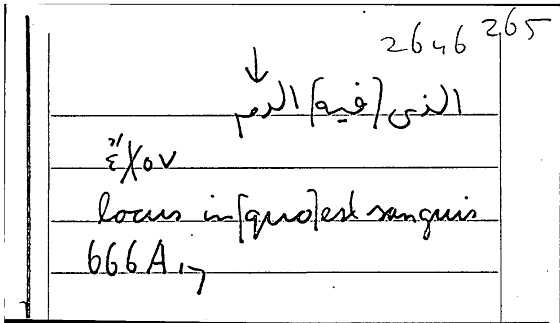 2646 265
الذى [فيه] الدم
ἔχον
locus in [quo] est sanguis
666A 17